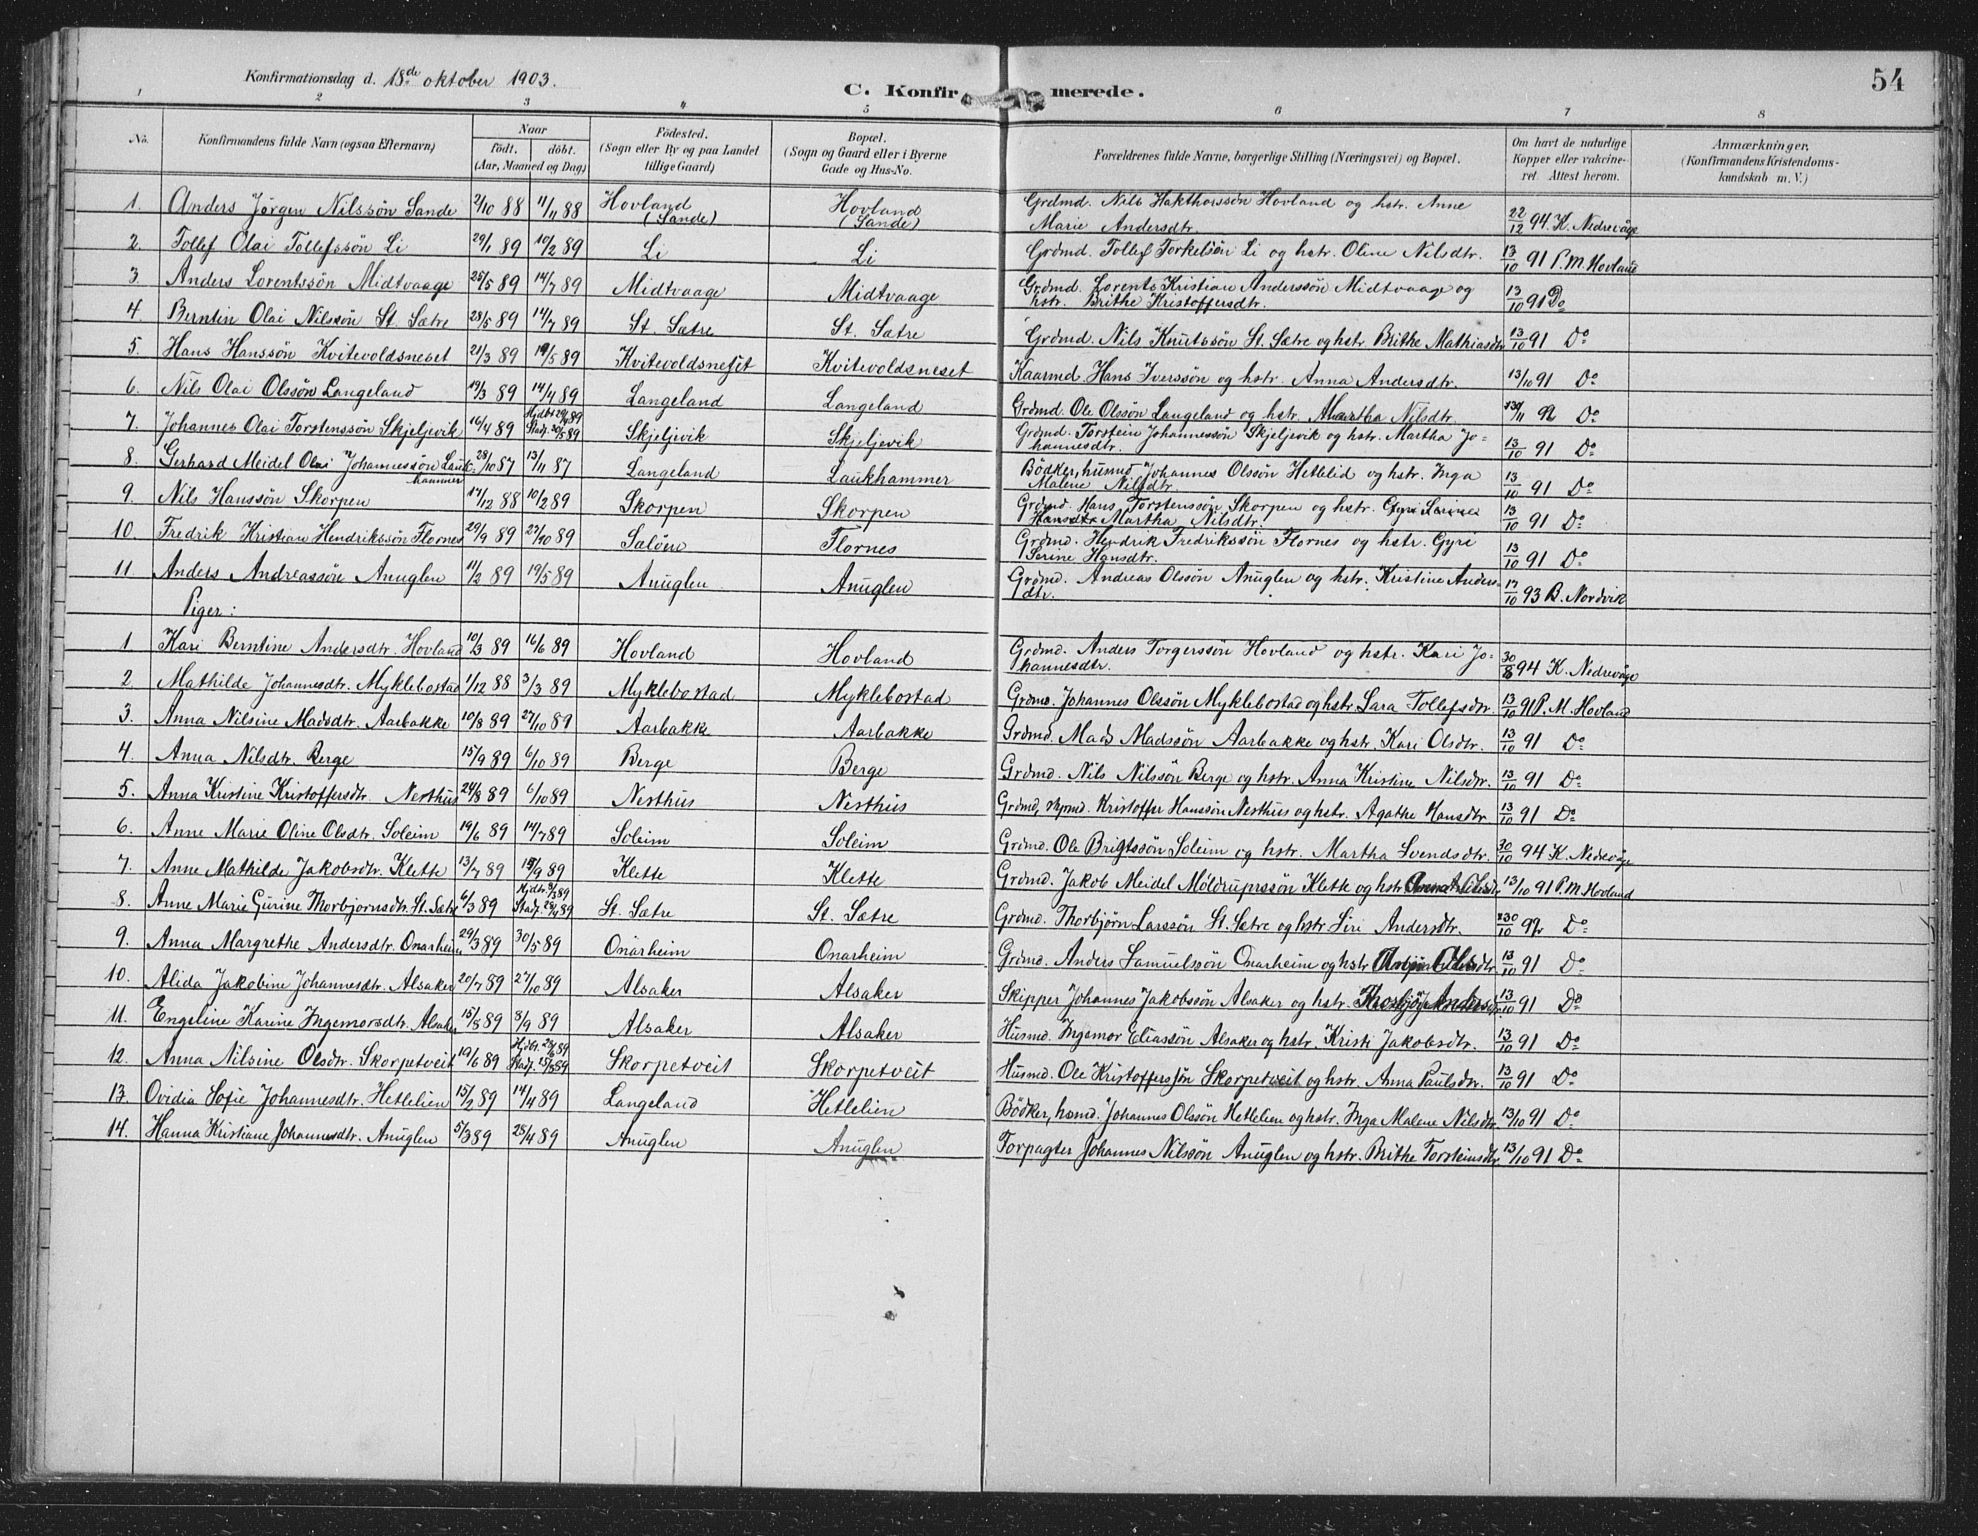 54
Konfirmationsdag d. 18de oktober 1903.
C. Konfirmerede.
1 2 3 4 5 6 7 8
No. Konfirmandens fulde Navn (ogsaa Efternavn) Naar født. døbt. (Aar, Maaned og Dag) Födested. (Sogn eller By og paa Landet tillige Gaard) Bopæl. (Sogn og Gaard eller i Byerne Gade og Hus-No. Forældrenes fulde Navne, borgerlige Stilling (Næringsvei) og Bopæl. Om havt de naturlige Kopper eller vakcineret. Attest herom. Anmærkninger. (Konfirmandens Kristendomskundskab m. V.)
1. Anders Jørgen Nilssön Sande 2/10 88 11/11 88 Hovland (Sande) Hovland (Sande) Grdmd. Nils Hakthorssön Hovland og hstr. Anne Marie Andersdtr. 22/12 94 K. Nedrevåge
2. Tollef Olai Tollefssön Li 29/1 89 10/2 89 Li Li Grdmd. Tollef Torkelsön Li og hstr. Oline Nilsdtr. 13/10 91 P. M. Hovland
3. Anders Lorentssön Midtvaage 25/5 89 14/7 89 Midtvaage Midtvaage Grdmd. Lorents Kristian Anderssön Midtvaage og hstr. Brithe Kristoffersdtr. 13/10 91 Do
4. Berntin Olai Nilssön St. Sætre 28/5 89 14/7 89 St. Sætre St. Sætre Grdmd. Nils Knutssön St. Sætre og hstr. Brithe Mathiasdtr 13/10 91 Do
5. Hans Hanssön Kvitevoldsneset 21/3 89 19/5 89 Kvitevoldsneset Kvitevoldsneset Kaarmd. Hans Iverssön og hstr. Anna Andersdtr. 13/10 91 Do
6. Nils Olai Olssön Langeland 19/3 89 14/4 89 Langeland Langeland Grdmd. Ole Olssön Langeland og hstr. Martha Nilsdtr. /11 92 Do
7. Johannes Olai Torstenssön Skjeljevik 16/4 89 Hjdbt 29/4 89 Stadf. 30/5 89 Skjeljvik Skjeljevik Grdmd. Torstein Johannessön Skjeljevik og hstr. Martha Johannesdtr. 13/10 91 Do
8. Gerhard Meidel Olai Johannessön Laukhammer 28/10 87 13/11 87 Langeland Laukhammer Bödker, husmd Johannes Olssön Hetlelid og hstr. Inga Malene Nilsdtr 13/10 91 Do
9. Nils Hanssön Skorpen 17/12 88 10/2 89 Skorpen Skorpen Grdmd. Hans Torstenssön Skorpen og hstr. Gyri Serine Hansdtr Martha Nilsdtr. 13/10 91 Do
10. Fredrik Kristian Hendrikssön Flornes 29/9 89 27/10 89 Salöen Flornes Grdmd. Hendrik Fredrikssön Flornes og hstr. Gyri Serine Hansdtr. 13/10 91 Do
11 Anders Andreassön Anuglen 11/2 89 19/5 89 Anuglen Anuglen Grdmd. Andreas Olssön Anuglen og hstr. Kristine Andersdtr. 17/10 93 B. Nordvik
Piger:
1 Kari Berntine Andersdtr. Hovland 10/3 89 16/6 89 Hovland Hovland Grdmd. Anders Torgerssön Hovland og hstr. Kari Johannesdtr. 30/8 94 K. Nedrevåge
2. Mathilde Johannesdtr. Myklebostad 1/12 88 3/3 89 Myklebostad Myklebostad Grdmd. Johannes Olssön Myklebostad og hstr. Lara Tollefsdtr. 13/10 91 P. M. Hovland
3. Anna Nilsine Madsdtr. Aarbakke 10/8 89 27/10 89 Aarbakke Aarbakke Grdmd. Mads Madssön Aarbakke og hstr. Kari Olsdtr. 13/10 91 Do
4. Anna Nilsdtr. Berge 15/9 89 6/10 89 Berge Berge Grdmd. Nils Nilssön Berge og hstr. Anna Kristine Nilsdtr. 13/10 91 Do
5. Anna Kristine Kristoffersdtr. Nerthus 24/8 89 6/10 89 Nerthus Nerthus Grdmd, skrmd. Kristoffer Hanssön Nerthus og hstr. Agathe Hansdtr 13/10 91 Do
6. Anne Marie Oline Olsdtr. Soleim 19/6 89 14/7 89 Soleim Soleim Grdmd. Ole Brigtssön Soleim og hstr. Martha Svendsdtr. 30/10 94 K. Nedrevåge
7. Anne Mathilde Jakobsdtr. Klette 13/7 89 15/9 89 Klette Klette Grdmd. Jakob Meidel Möldrupssön Klette og hstr. 13/10 91 P. M. Hovland
8. Anne Marie Gurine Thorbjornsdtr. St. Sætre 6/3 89 Hjdbt 9/3 89 Stadf. 28/4 89 St. Sætre St. Sætre Grdmd. Thorbjörn Larssön St. Sætre og hstr. Siri Andersdtr. /10 Do
9. Anna Margrethe Andersdtr. Onarheim 29/3 89 30/5 89 Onarheim Onarheim Grdmd. Anders Samuelssön Onarheim og hstr. 13/10 91 Do
10. Alida Jakobine Johannesdtr. Alsaker 20/7 89 27/10 89 Alsaker Alsaker Skipper Johannes Jakobssön Alsaker og hstr. 13/10 91 Do
11. Engeline Karine Ingemorsdtr. Alsaker 15/8 89 8/9 89 Alsaker Alsaker Husmd. Ingemor Eliassön Alsaker og hstr. Kristi Jakobsdtr. 13/10 91 Do
12. Anna Nilsine Olsdtr. Skorpetveit 19/6 89 Skorpetveit Skorpetveit Husmd. Ole Kristofferssön Skorpetveit og hstr. Anna Paulsdtr. 13/10 91 Do
13. Ovidia Sofie Johannesdtr. Hetlelien 15/2 89 14/4 89 Langeland Hetlelien Bödker, hsmd. Johannes Olssön Hetlelien og hstr. Inga Malene Nilsdtr 13/10 91 Do
14. Hanna Kristiane Johannesdtr. Anuglen 5/3 89 28/4 89 Anuglen Anuglen Forpagter Johannes Nilssön Anuglen og hstr. Brithe Torsteinsdtr. 13/10 91 Do